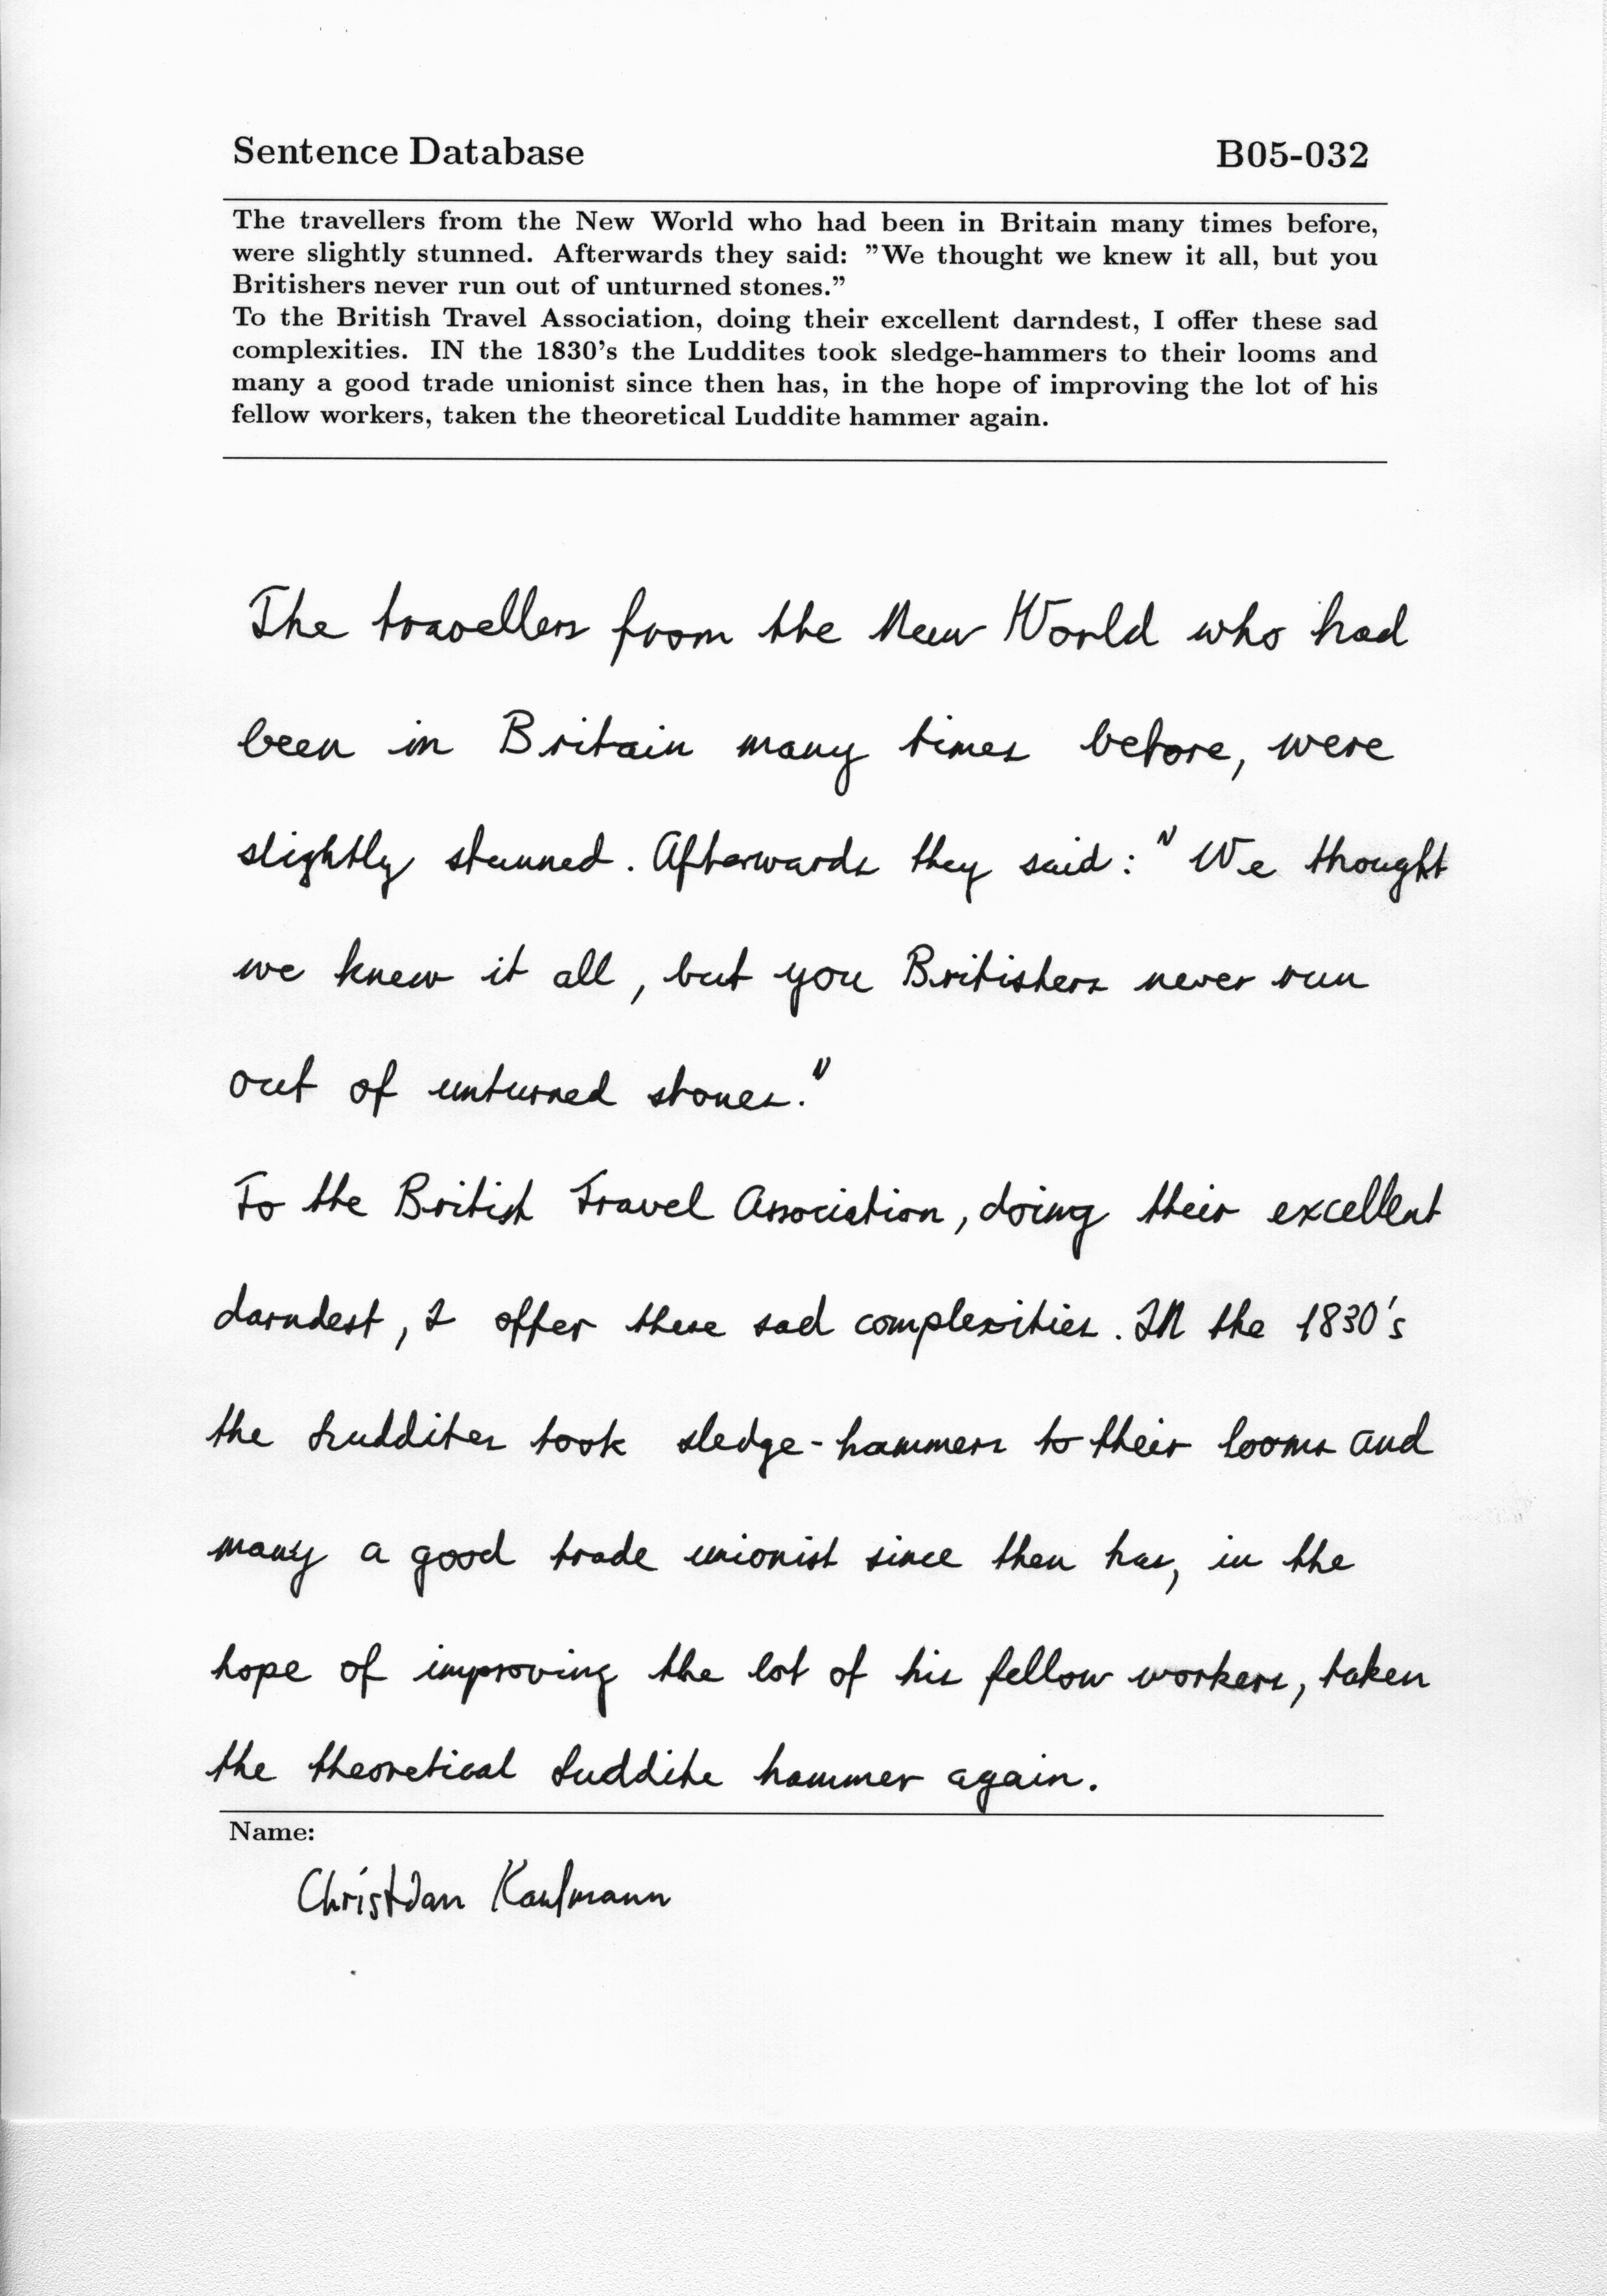 Sentence Database B05-032
The travellers from the New World who had been in Britain many times before,
were slightly stunned. Afterwards they said: ”We thought we knew it all, but you
Britishers never run out of unturned stones.”
To the British Travel Association, doing their excellent darndest, I offer these sad
complexities. IN the 1830’s the Luddites took sledge-hammers to their looms and
many a good trade unionist since then has, in the hope of improving the lot of his
fellow workers, taken the theoretical Luddite hammer again.
The travellers from the New World who had
been in Britain many times before, were
slightly stunned. Afterwards they said: "We thought
we knew it all, but you Britishers never run
out of unturned stones."
To the British Travel Association, doing their excellent
darndest, I offer these sad complexities. IN the 1830's
the Luddites took sledge-hammers to their looms and
many a good trade unionist since then has, in the
hope of improving the lot of his fellow workers, taken
the theoretical Luddite hammer again.
Name:
Christian Kaufmann